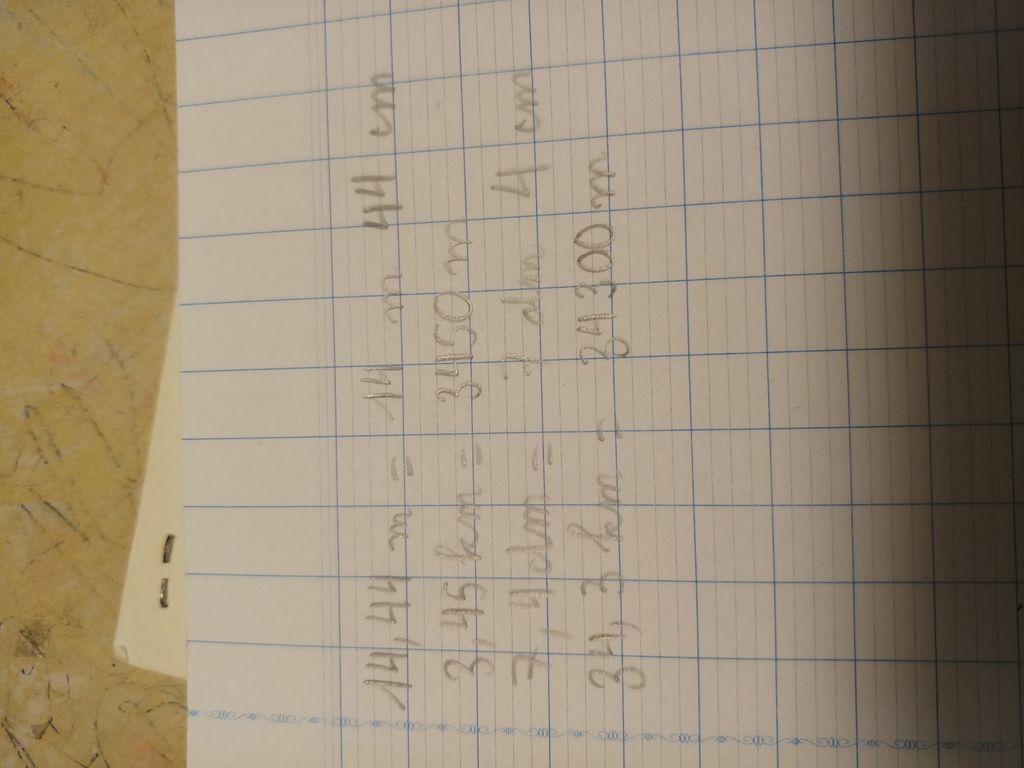 14,44 m = 14 m 44 cm
3,45 km = 3450 m
7,4 dm = 7 dm 4 cm
34,3 km = 34300 m